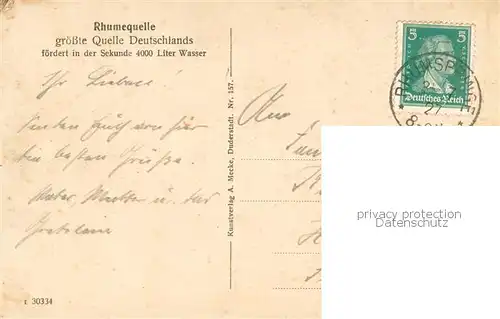 Rhumequelle
größte Quelle Deutschlands
fördert in der Sekunde 4000 Liter Wasser
Ihr Lieben!
Senden Euch von hier
die besten Grüße.
Vater, Mutter u. das
1 30334
Kunstverlag A. Mecke, Duderstadt. Nr. 157.
5 5
Deutsches Reich
RHUMSPRINGE
27
privacy protection
Datenschutz